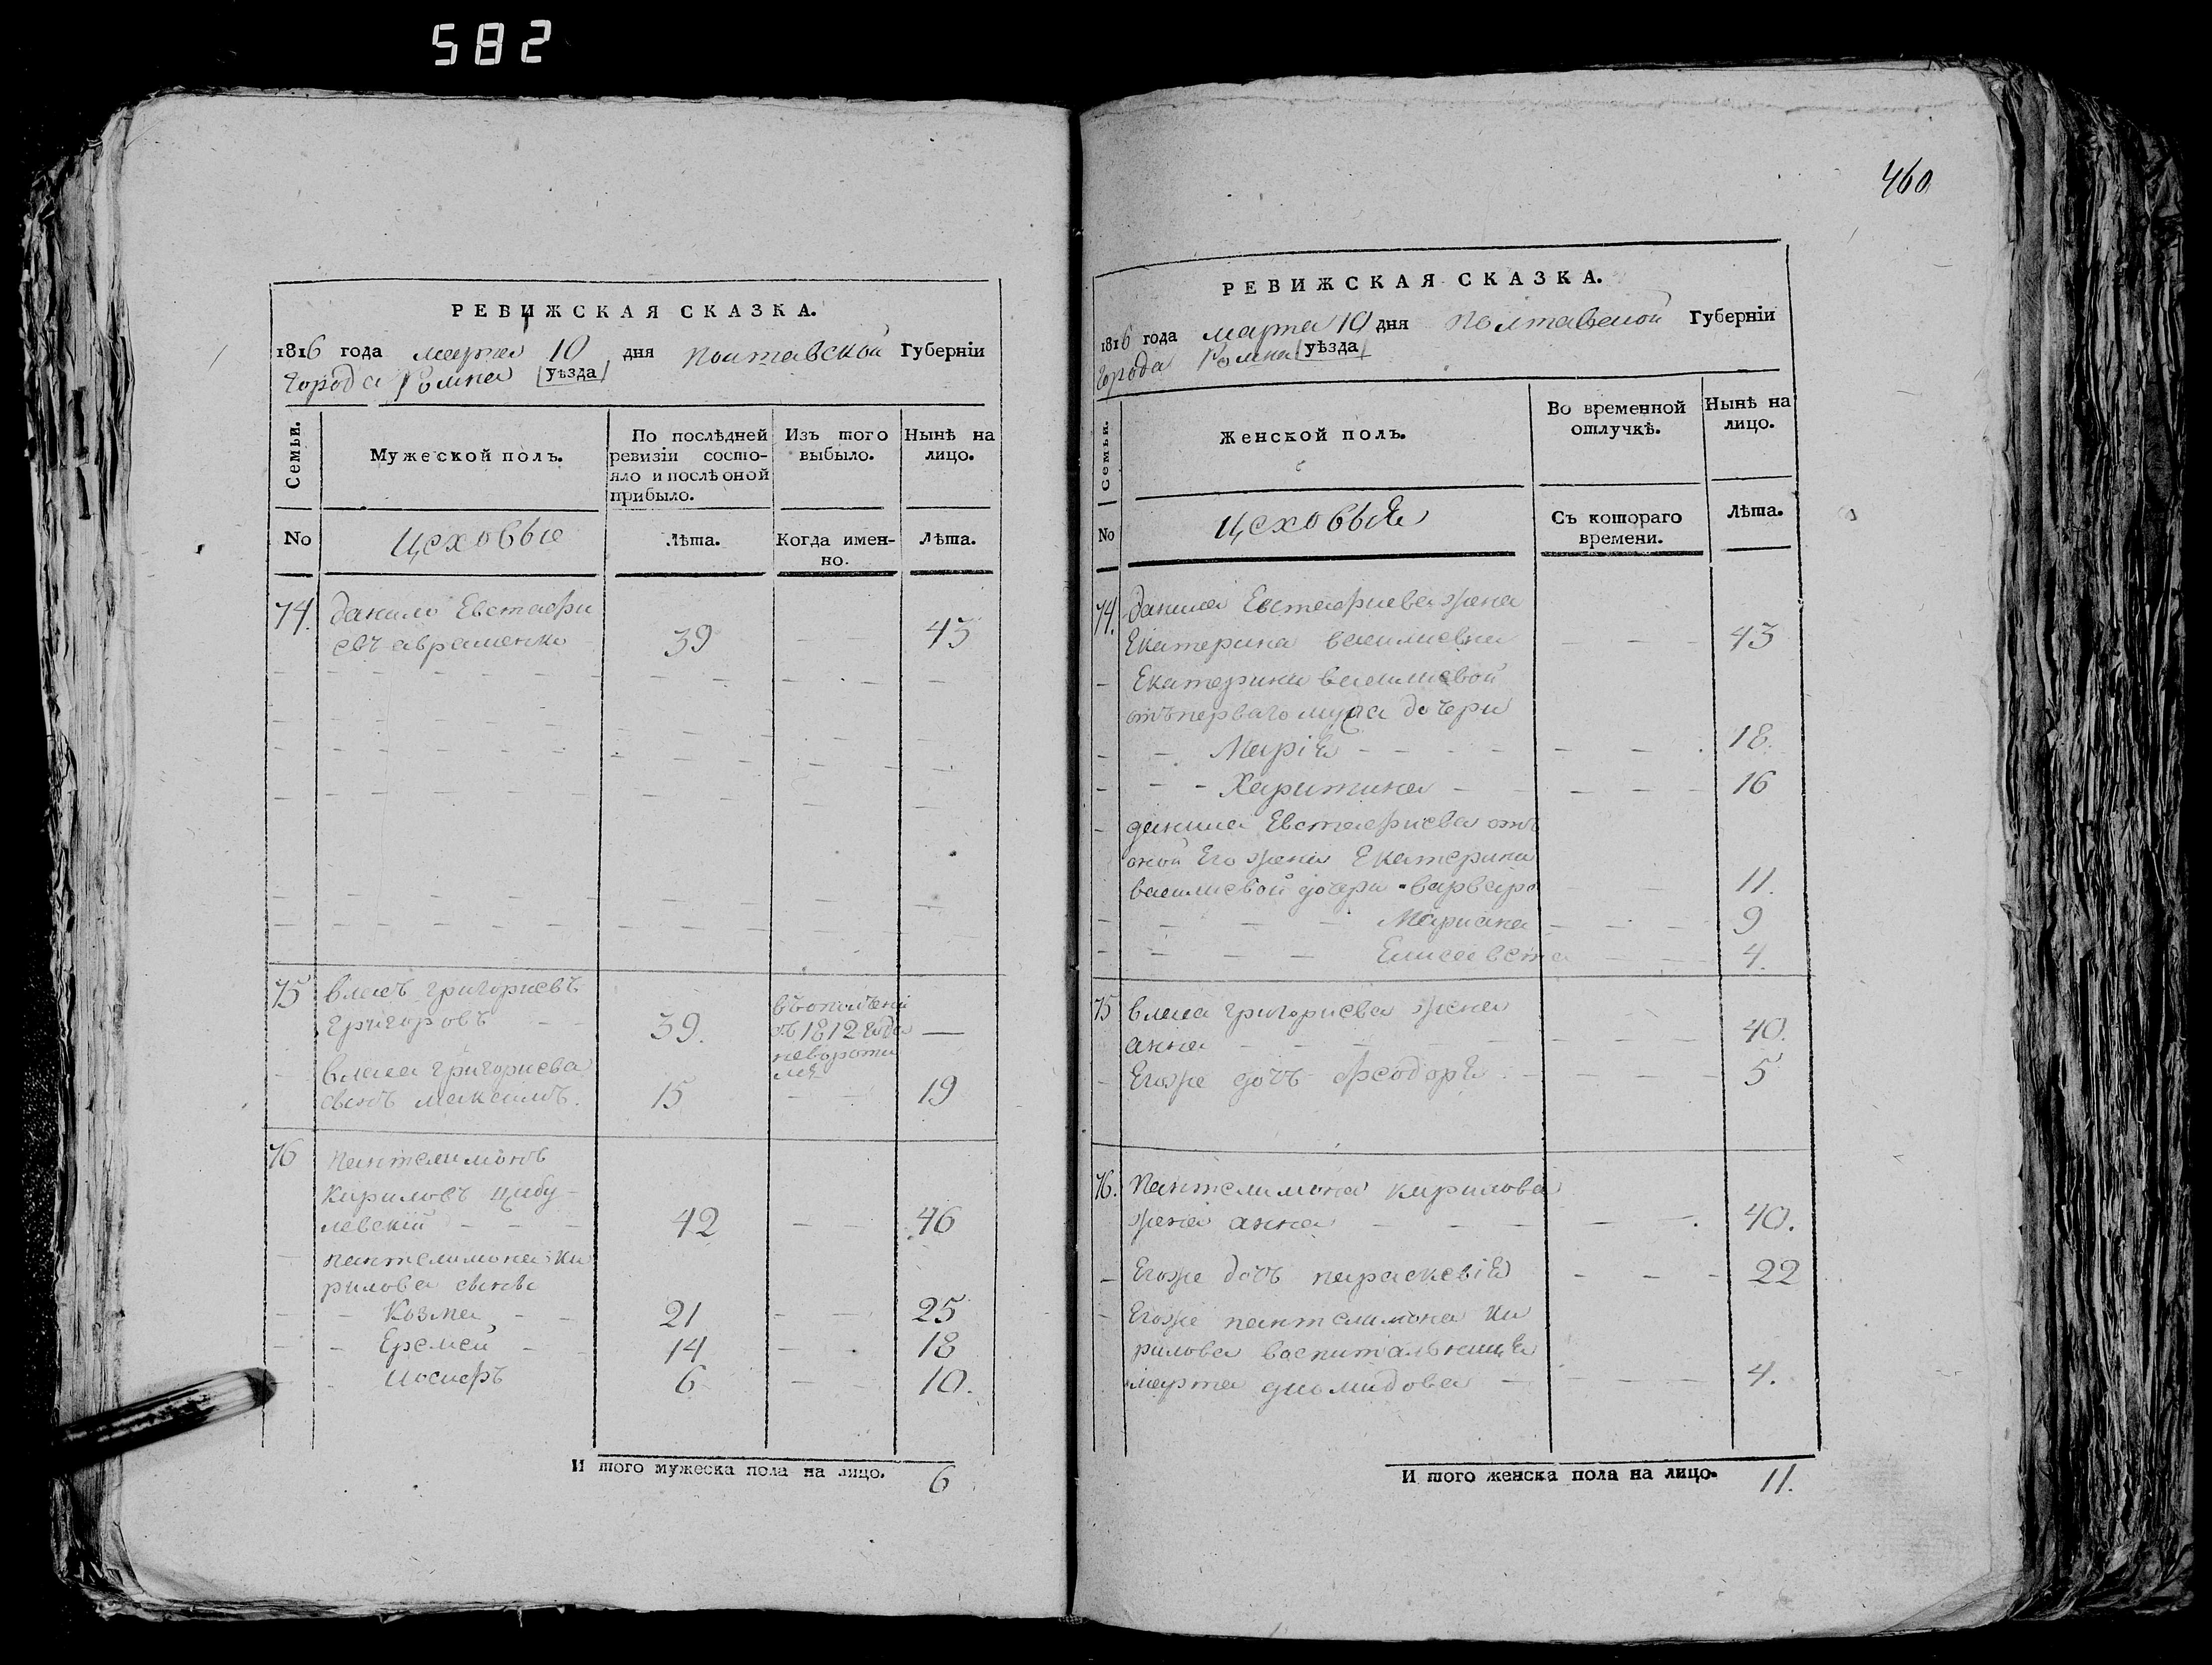 582
РЕВИЖСКАЯ СКАЗКА.
1816 года марта 10 дня Полтавской Губерніи
города Ромна уѣзда
Семьи.
Мужеской полъ.
По послѣдней ревизіи состояло и послѣ оной прибыло.
Изъ того выбыло.
Нынѣ на лицо.
No
Цеховые
Лѣта.
Когда именно.
Лѣта.
74. данило Евстафи
евъ авраменко 39 — — 43
75 власъ григориевъ
григоровъ — — 39. въ ополчені
въ 1812 года —
невороти
лся
власа григориева
сынъ максимъ. 15 — — 19
76 пантелимонъ
кириловъ цибу-
левскій — — — 42 — — 46
— пантелимона ки
рилова сыны
— — Козма — — 21 — — 25
— — Еремей — — 14 — — 18
— Иосифъ 6 — 10.
И того мужеска пола на лицо. 6
460
РЕВИЖСКАЯ СКАЗКА.
1816 года марта 10 дня Полтавской Губерніи
города Ромна уѣзда
Семьи.
Женской полъ.
Во временной отлучкѣ.
Нынѣ на лицо.
No
Цеховые
Съ котораго времени.
Лѣта.
74. данила Евстафиева жена
Екатерина василиевна — — — 43
— Екатерини василиевой
отъ перваго мужа дочери
— — Марія — — — — — — 18.
— — — Харитина — — — — — 16
— данила Евстафиева отъ
оной Его жени Екатерини
василиевой дочери варвара — — 11.
— — — — Мариана — — — 9
— — — — Елисавета — — 4.
75 власа григориева жена
анна — — — — — — — — 40.
— Егоже дочъ феодора — — — — 5
76. пантелимона кирилова
жена анна — — — — — 40.
— Егоже дочъ параскевія — — — 22
— Егоже пантелимона ки
рилова васпитальница
марта диомидова — — — — 4.
И того женска пола на лицо. 11.